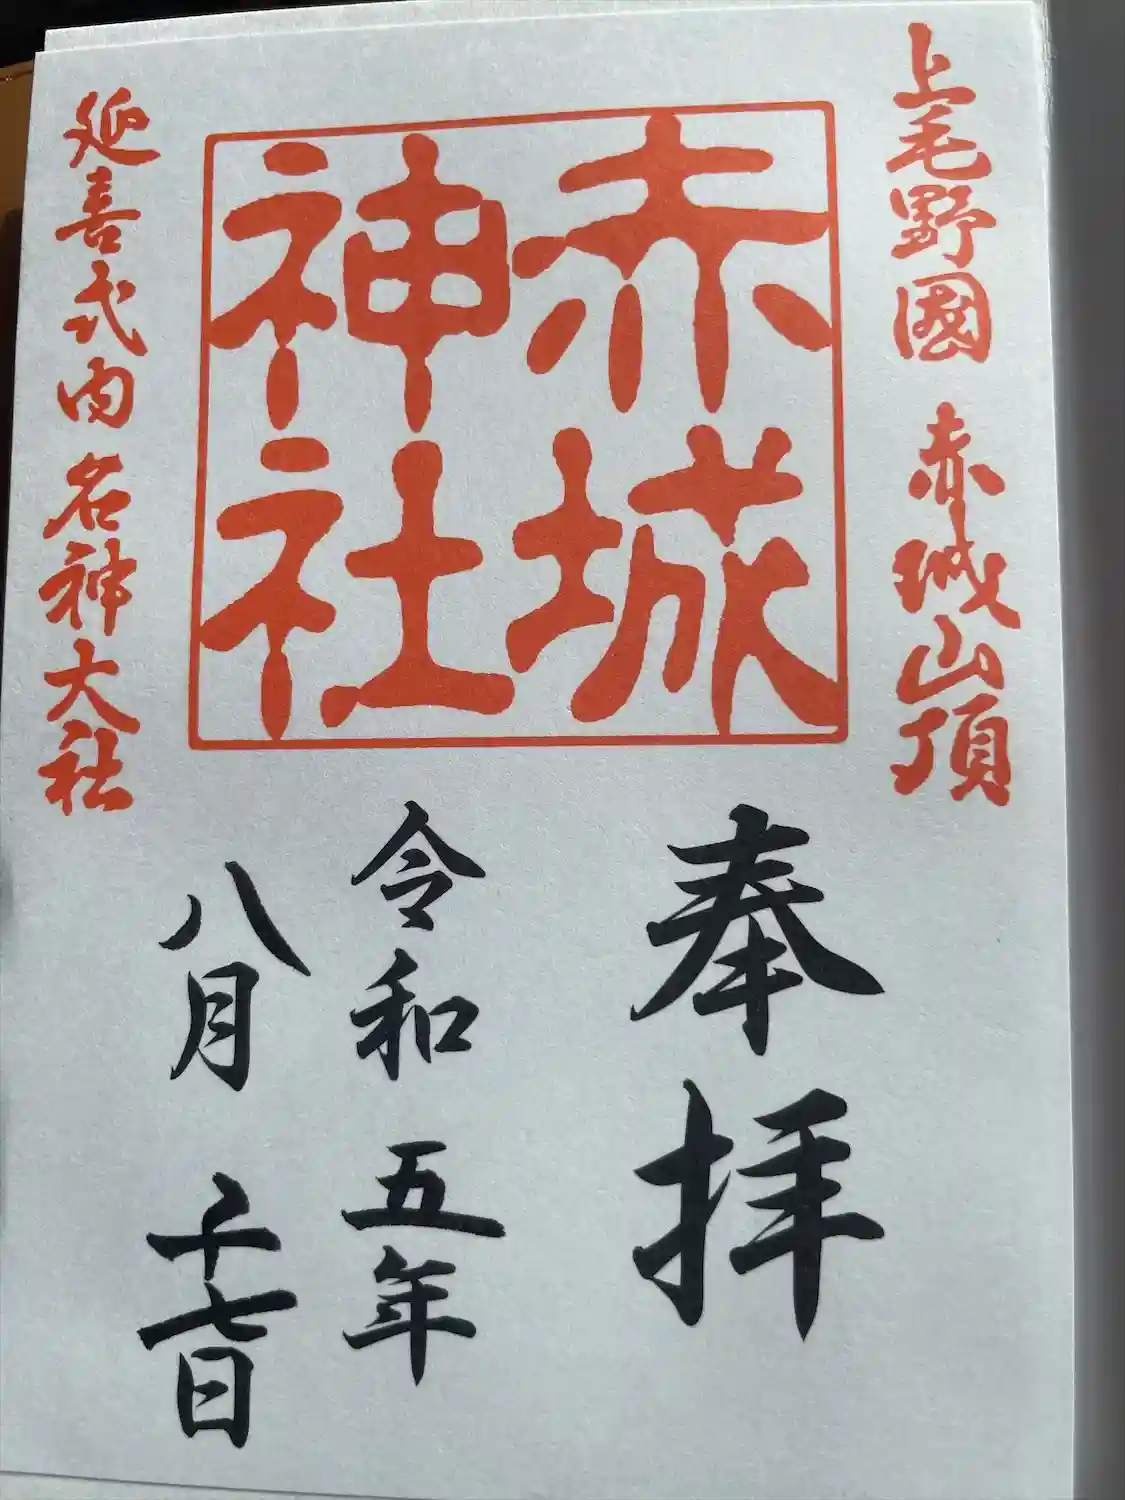 上毛野國 赤城山頂
赤城
神社
延喜式内 名神大社
奉拝
令和 五年
八月 十七日